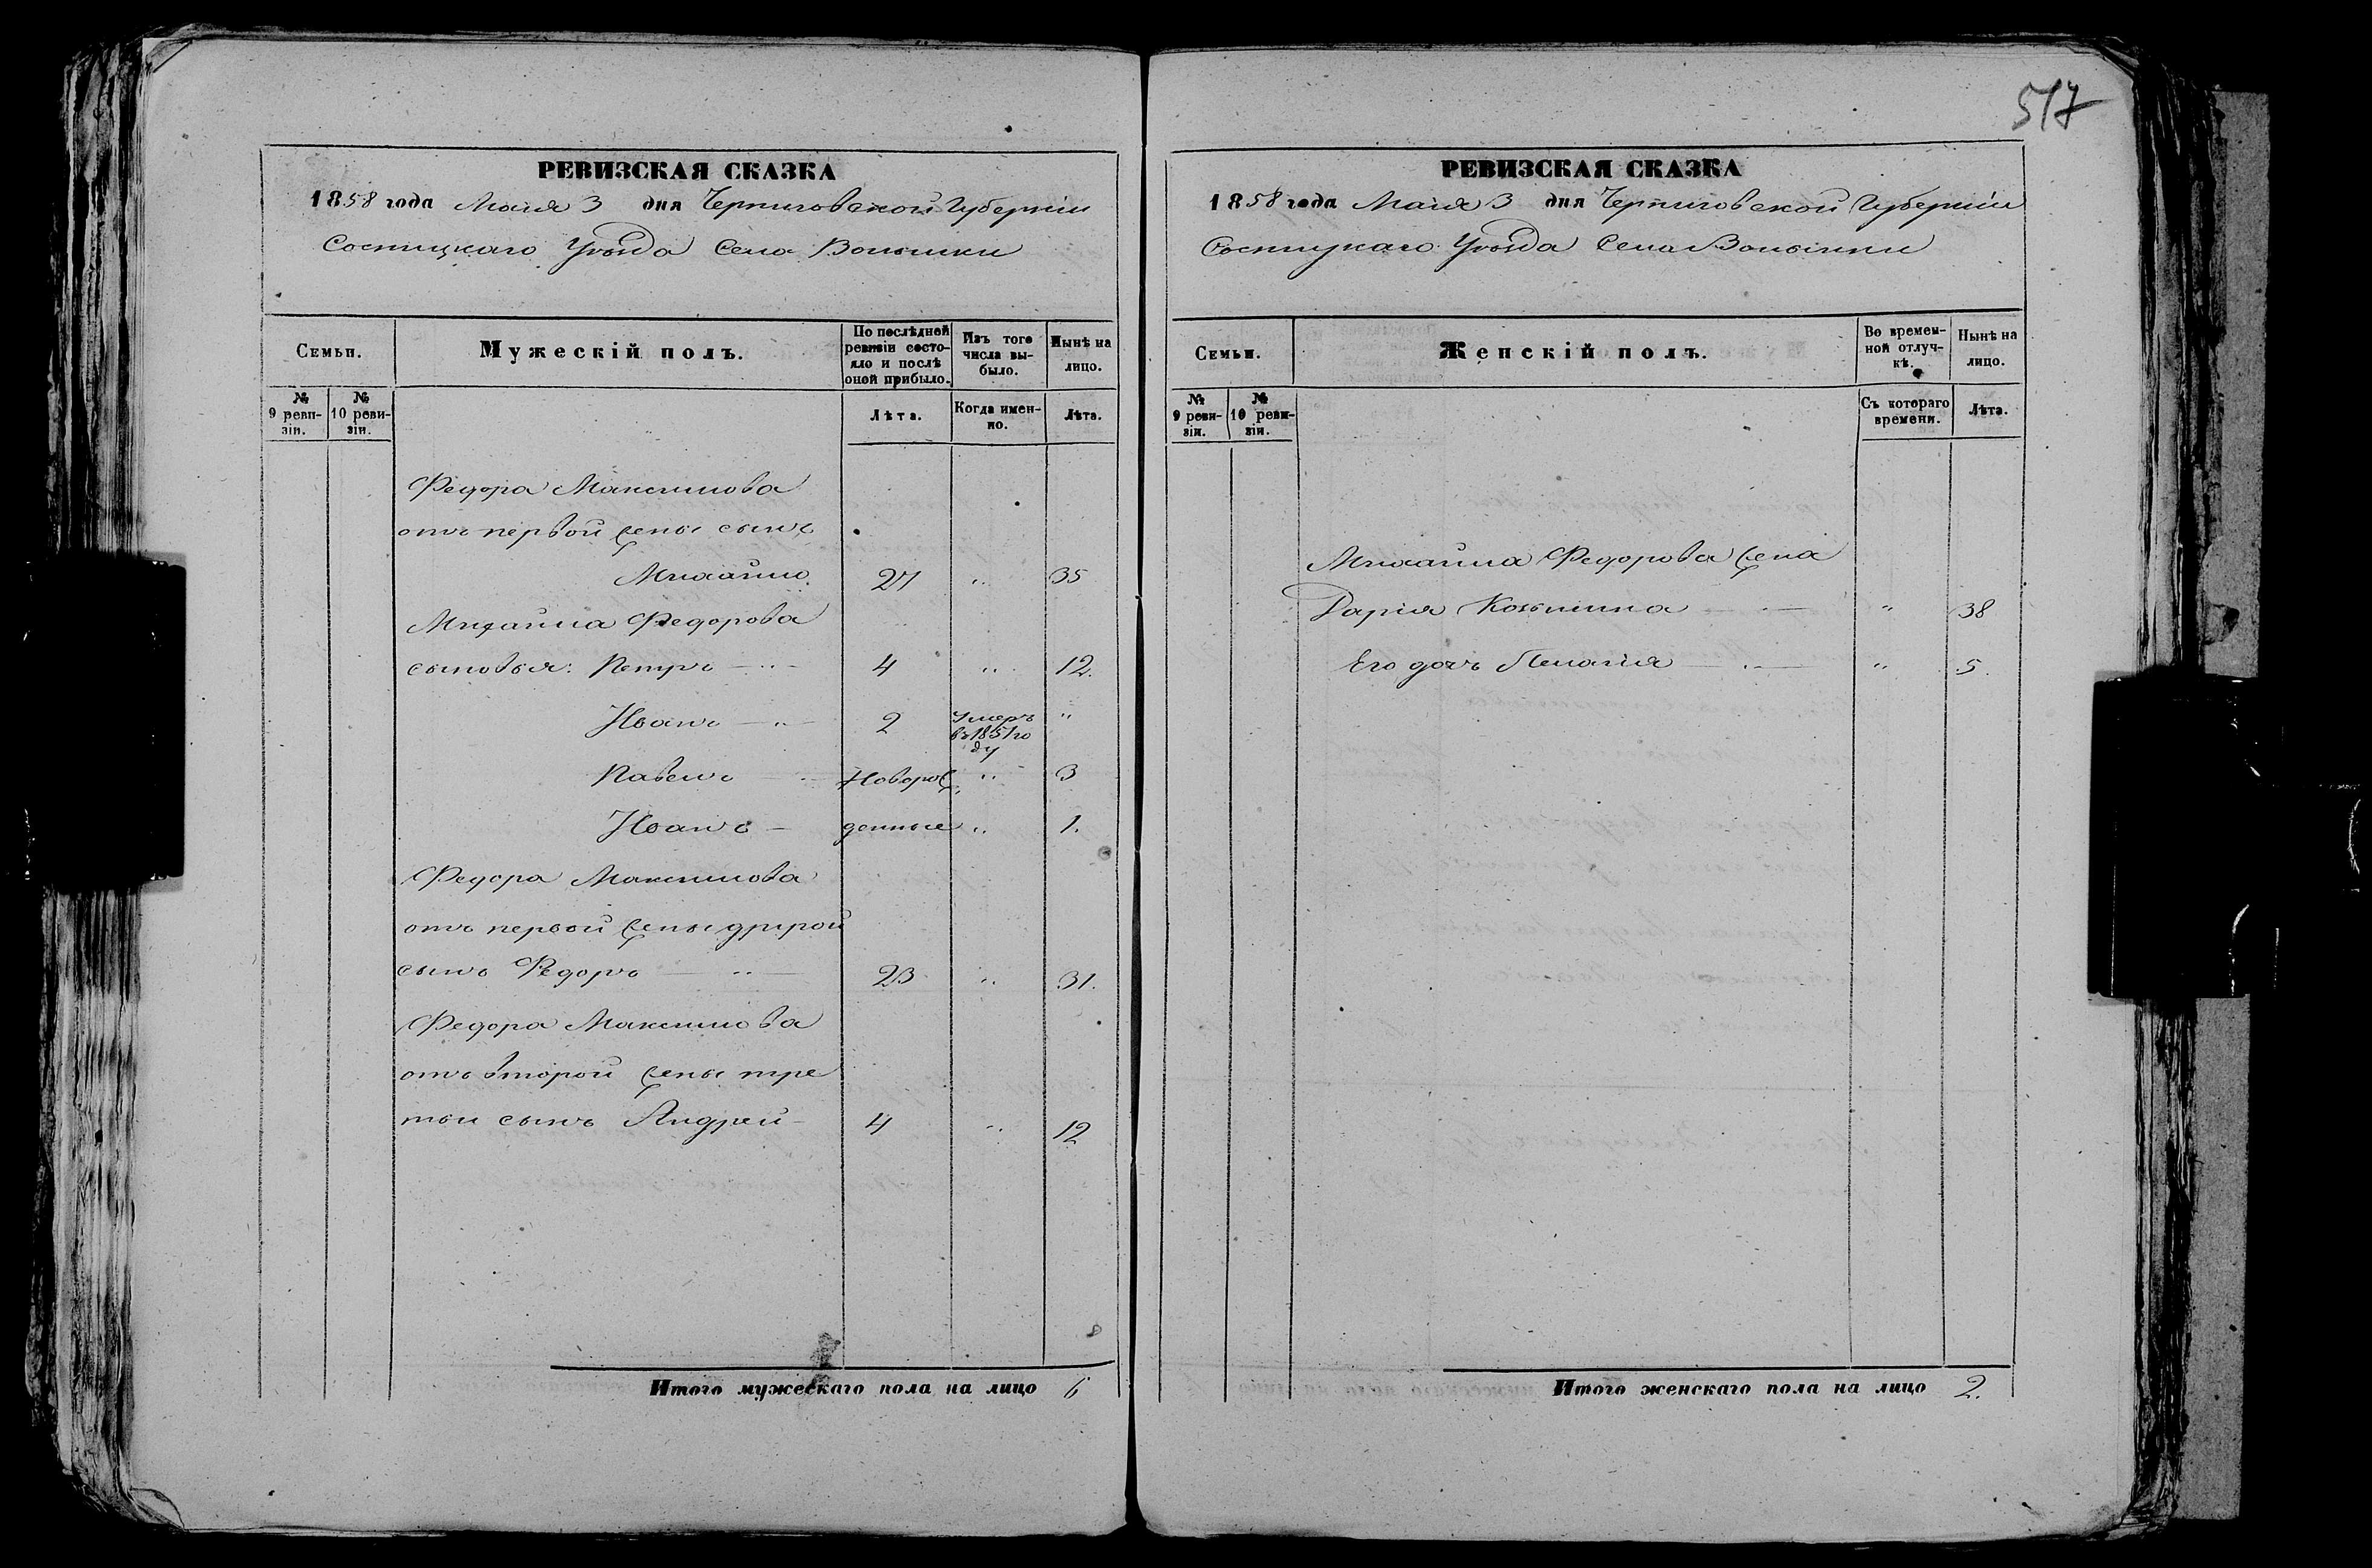 517
РЕВИЗСКАЯ СКАЗКА
1858 года Маия 3 дня Черниговской Губерніи
Сосницкаго Уѣзда Села Волынки
Семьи.
Мужескій полъ.
По послѣдней ревизіи состояло и послѣ оной прибыло.
Изъ того числа выбыло.
Нынѣ на лицо.
№ 9 ревизіи.
№ 10 ревизіи.
Лѣта.
Когда именно.
Лѣта.
Федора Максимова
отъ первой жены сынъ
Михайло. 27 „ 35
Михайла Федорова
сыновья: Петръ — „ — 4 „ 12.
Иванъ — „ — 2 Умеръ въ 1851 году „
Павелъ — Новорож „ 3
Иванъ — денные „ 1.
Федора Максимова
отъ первой жены другой
сынъ Федоръ — „ — 23 „ 31.
Федора Максимова
отъ второй жены тре
тьи сынъ Андрей — 4 „ 12
Итого мужескаго пола на лицо 6
РЕВИЗСКАЯ СКАЗКА
1858 года Маия 3 дня Черниговской Губерніи
Сосницкаго Уѣзда Села Волынки
Семьи.
Женскій полъ.
Во временной отлучкѣ.
Нынѣ на лицо.
№ 9 ревизіи.
№ 10 ревизіи.
Съ котораго времени.
Лѣта.
Михайла Федорова жена
Дарія Козьмина — „ — „ 38
Его дочь Пелагія — „ — „ 5.
Итого женскаго пола на лицо 2.